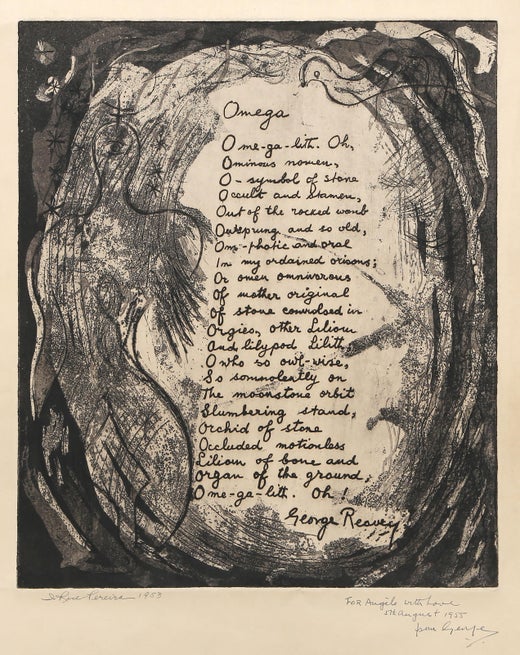 Omega
O me-ga-lith. Oh,
Ominous nomen,
O- symbol of stone
Occult and stamen,
Out of the rocked womb
Outsprung and so old,
Om-phalic and oral
In my ordained orisons;
Or omen omnivorous
Of mother original
Of stone convolosed in
Orgies, other Lilium
And lilypod Lilith,
O who so owl-wise,
So somnolently on
The moonstone orbit
Slumbering stand,
Orchid of stone
Occluded motionless
Lilium of bone and
Organ of the ground,
O me-ga-lith. Oh!
George Reavey
I Rice Pereira 1953
For Angelo with Love
August 1955
from George